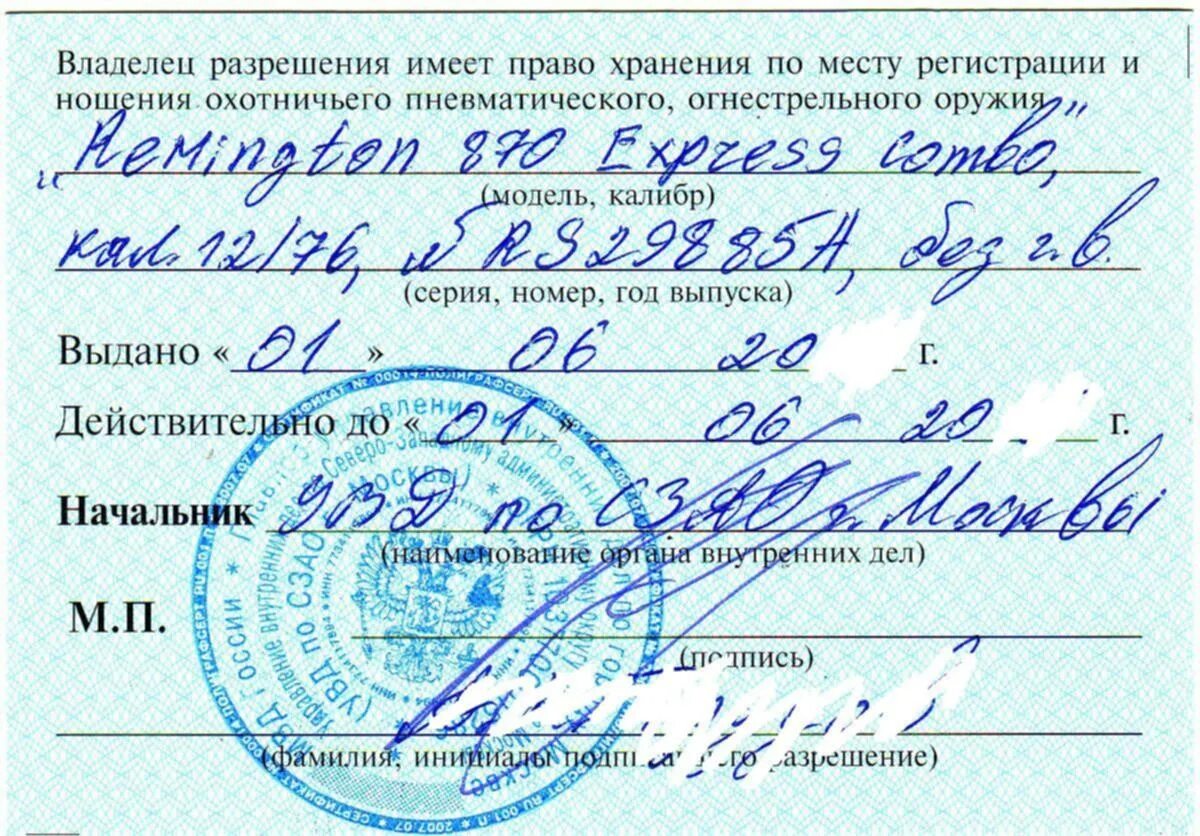 Владелец разрешения имеет право хранения по месту регистрации и
ношения охотничьего пневматического, огнестрельного оружия
"Remington 870 Express Combo",
(модель, калибр)
кал. 12/76, № RS29885A, без г.в.
(серия, номер, год выпуска)
Выдано « 01 » 06 20 г.
Действительно до « 01 » 06 20 г.
Начальник УВД по СЗАО г. Москвы
(наименование органа внутренних дел)
М.П.
(подпись)
(фамилия, инициалы разрешение)
МВД России * Главное управление внутренних дел по гор
Управление внутренних Северо-Западному административному округу
(УВД по СЗАО Москвы)